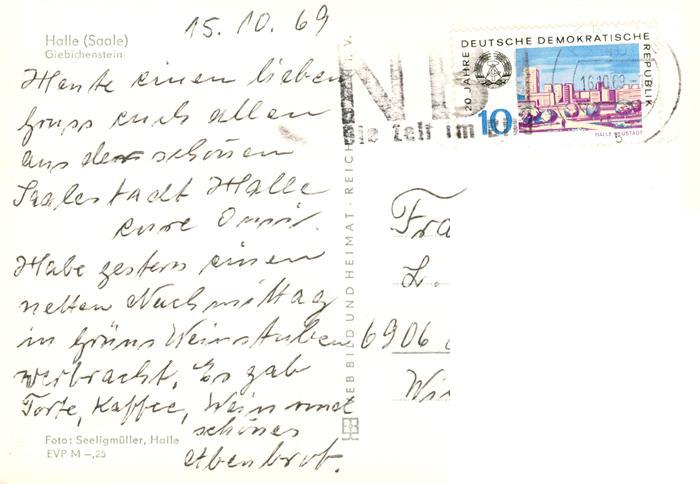 15.10.69
Halle (Saale)
Giebichenstein
Heute einen lieben
Gruss euch allen
aus der schönen
Saalestadt Halle
eure Omi.
Habe gestern einen
netten Nachmittag
in Grüns Weinstuben
verbracht. Es gab
Torte, Kaffee, Wein und
schönes
Abenbrot.
Foto: Seeligmüller, Halle
EVP M –,25
EB BILD UND HEIMAT · REIC
20 JAHRE DEUTSCHE DEMOKRATISCHE REPUBLIK
10
HALLE-NEUSTADT
16.10.69
Zeit im
Fra
L.
6906
Wi